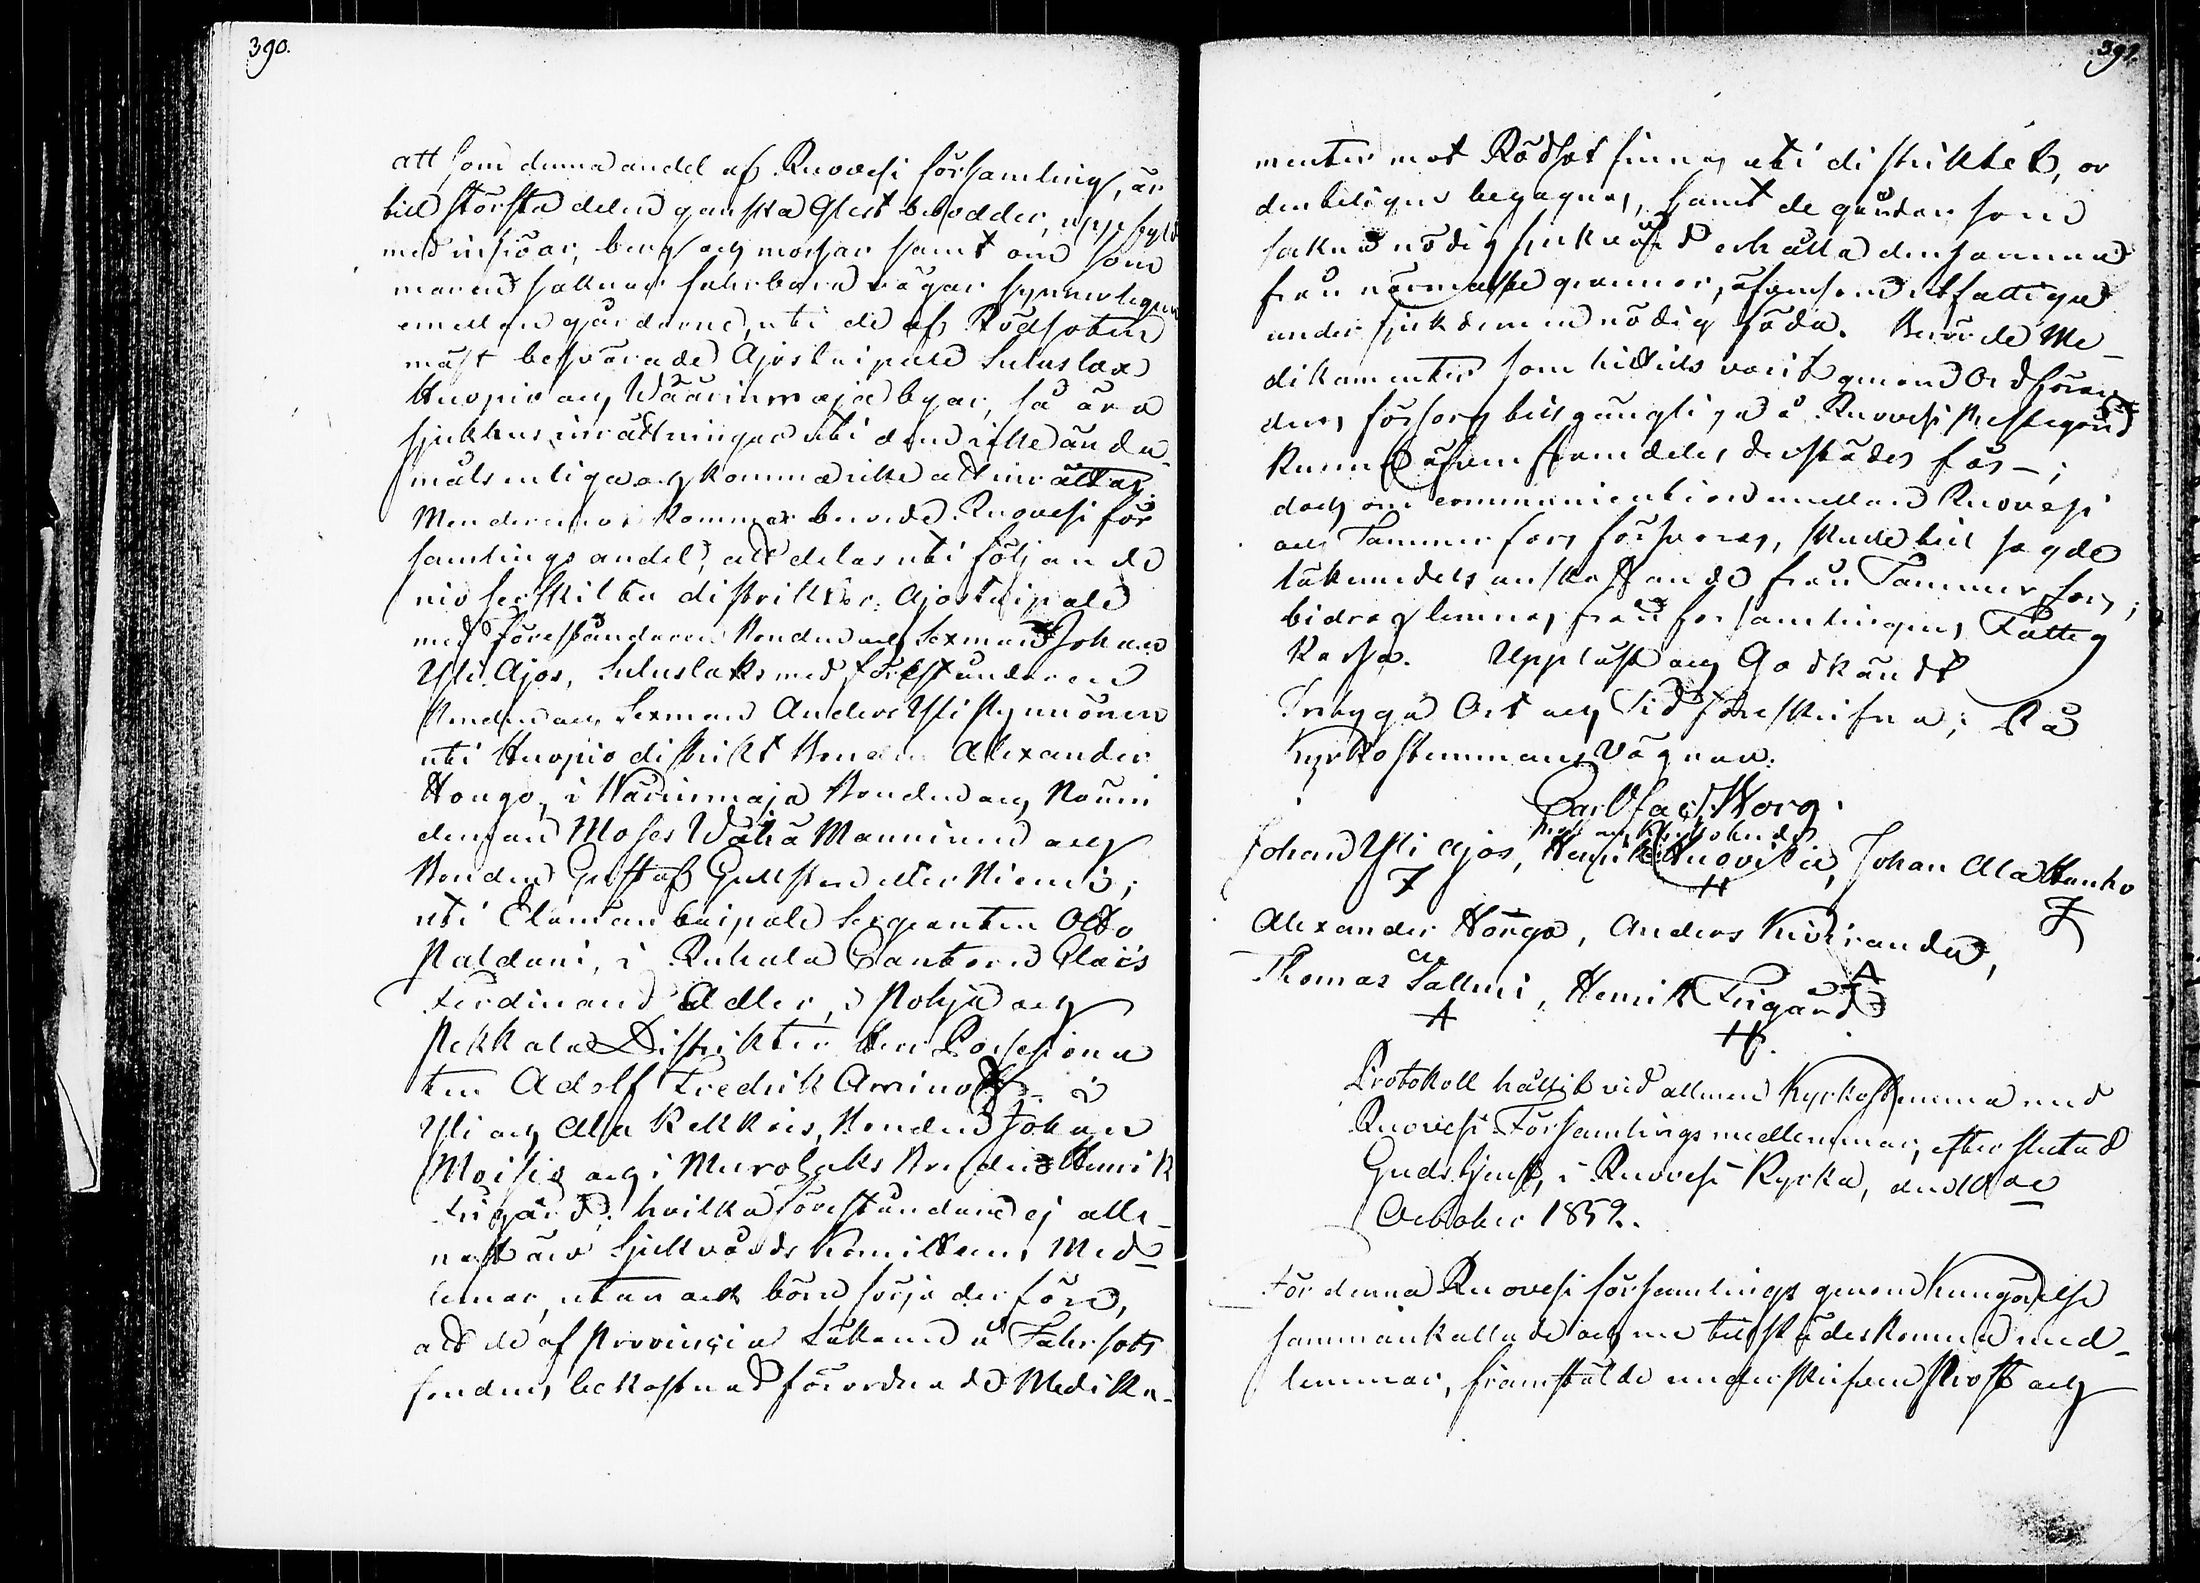 390.
att som denna andel af Ruovesi församling, är
till största delen ganska glest bebodder, uppfyld
med insjöar, berg och mossar samt om som
maren saknar farbara vägar synnerligen
emellan gårdarne, uti de af Rödsoten
mäst besvärade Ajostaipale Suluslax
Kuopio och Wäärinmaja byar, så äro
sjukhus inrättningar uti dem icke ända-
målsenliga och komma icke att inrättas.
Men deremot kommer berörde Ruovesi för
samlings andel, att delas uti följande
nio serskilta distrikter: Ajostaipale
med föreståndaren Bonden och Sexman Johan
Yli Ajos, Suluslaks med föreståndaren
Bonden och Sexman Anders Yli
uti Kuopio distrikt Bonden Alexander
Hongo, i Wäärinmaja Bonden och Nämn
deman Moses Wähä Manninen och
Bonden Gustaf Gullsten eller Niemi;
uti Eläman taipale Sergeanten Otto
Paldani, i Ruhala Cantorn Claës
Ferdinand Adler, i Pohja och
Pekkala Distrikter Herr Possessiona
ten Adolf Fredrik Aminoff - i
Yli och Ala Kekkois, Bonden Johan
Moisio och i Murolaks Bonden Henrik
Frigård; hvilka föreståndare ej alle-
nast äro Sjukvårds Komiteens Med-
lemar, utan ock böra sörja derföre,
att de af Provincial Läkaren å Farsots
fondens bekostnad förordnade Medika-
391.
menter mot Rödsot finnas uti distriktet, or
dentligen begagnas, samt de gårdar som
sakna nödig sjukvård erhålla densamma
från närmaste grannar, äfvensom utfattiga
under sjukdomen nödig föda. Berörde Me-
dikamenter som hittils varit genom Ordföran
dens försorg tillgängliga å Ruovesi Prestegård
kunna äfven framdeles derstädes fås -;
dock om communication emellan Ruovesi
och Tammerfors försvåras, skall till sagde
läkemedels anskaffande från Tammerfors;
bidrag lemnas från församlingens Fattig
Kassa. Uppläst och Godkändt
Intyga Ort och Tid föreskrifna; På
Kyrkostemmans vägnar.
Carl Worg
Johan Yli Ajos, Henrik Kuovila, Johan Ala Hanho
Alexander Hongo, Anders Kiviranda,
Thomas Salmi, Henrik Frigård
Protokoll hållit vid allmän Kyrkostemma med
Ruovesi Församlings medlemmar, efter slutad
Gudstjenst, i Ruovesi Kyrka, den
October 1852.
För denna Ruovesi församlings genom kungörelse
sammankallade och nu tillstädeskomna med-
lemmar, framstälde underskrifven Prost och